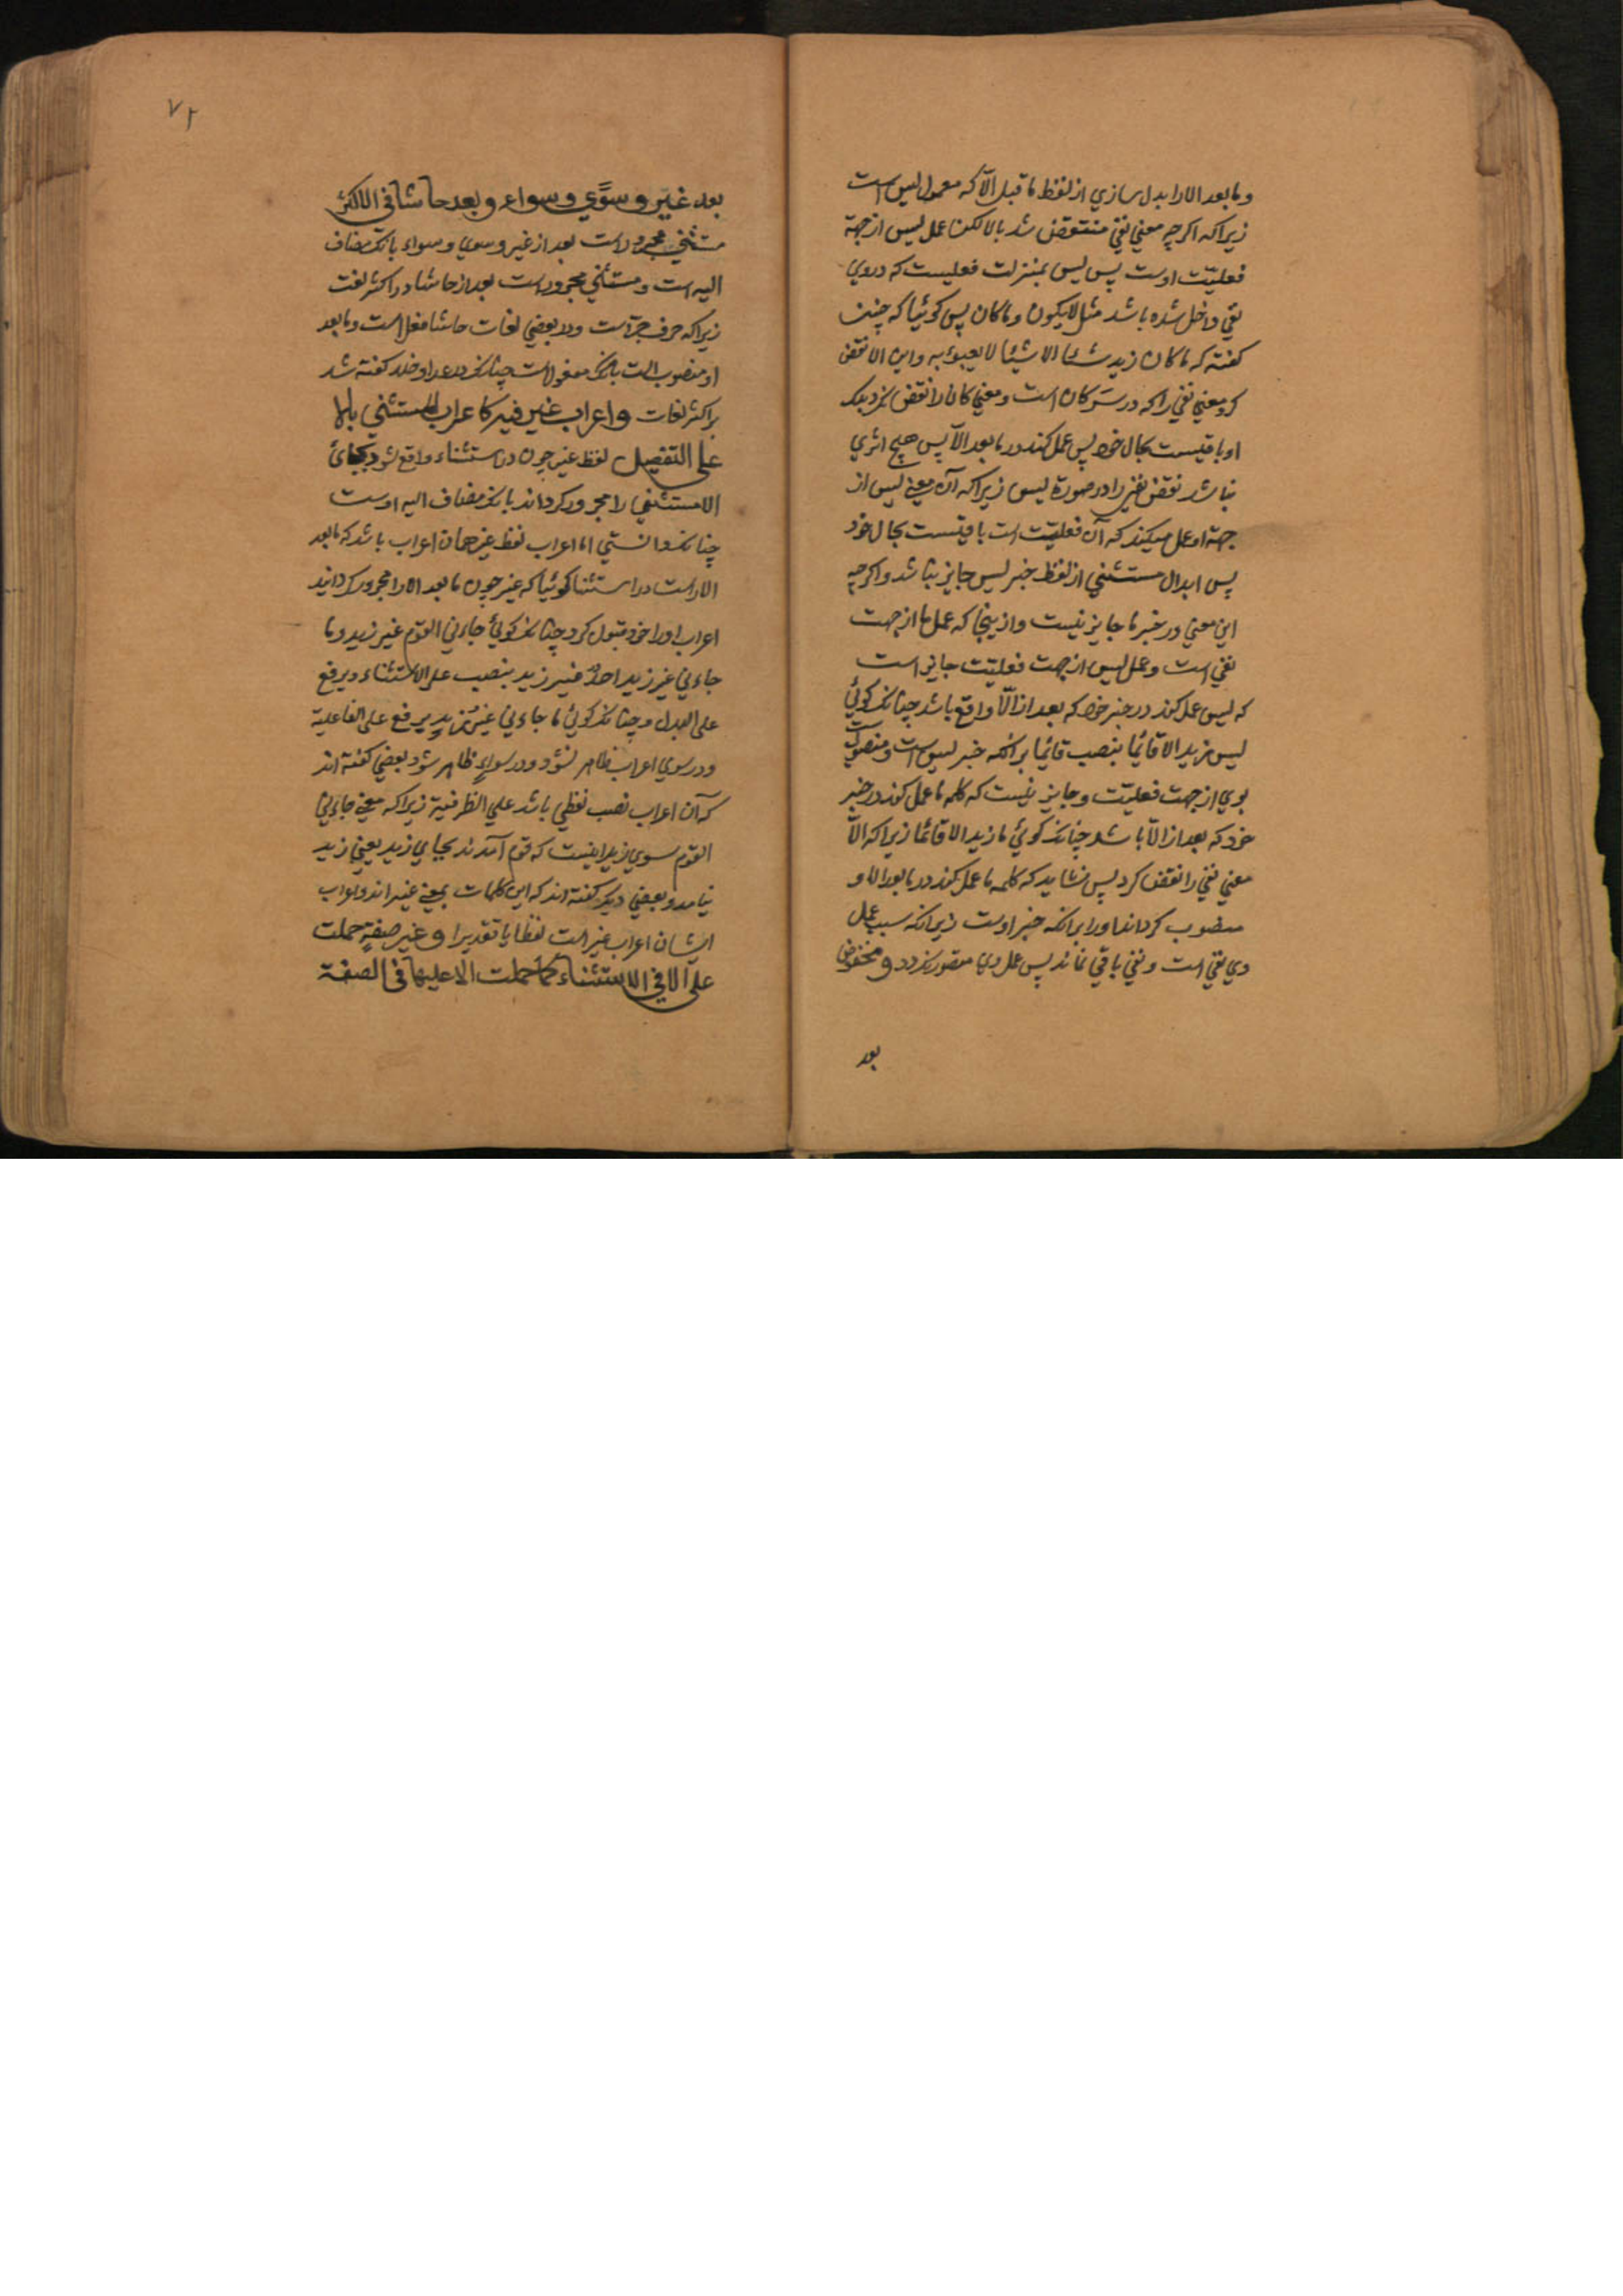 و ما بعد الا را بدل سازي از لفظ ما قبل الّا كه معمول ليس است
زيرا كه اكرچه معني نفي منتقض شد بالا لكن عمل ليس از جهة
فعليّت اوست پس ليس بمنزلت فعليست كه دروي
نفي داخل شده باشد مثل لا يكون و ما كان پس كوئيا كه چنين
كفتة كه ما كان زيد شئا الا شيئا لا يعبوء به و اين الا نقض
كرد معني نفي را كه در سر كان است و معني كان را نقض نكرد بلكه
او باقيست بحال خود پس عمل كند در ما بعد الّا پس هيچ اثري
نباشد نقض نفي را در صورة ليس زيرا كه آن معني ليس از
جهة او عمل ميكند كه آن فعليّت است باقيست بحال خود
پس ابدال مستثني از لفظ خبر ليس جايز باشد و اكرچه
اين معني در خبر ما جايز نيست و ازينجا كه عمل ما از جهت
نفي است و عمل ليس از جهت فعليّت جايز است
كه ليس عمل كند در خبر خود كه بعد از الّا واقع باشد چنانكه كوئي
ليس زيد الا قائما بنصب قائما برانكه خبر ليس است و منصوب
بوي از جهت فعليّت و جايز نيست كه كلمه ما عمل كند در خبر
خود كه بعد از الّا باشد چنانكه كوئي ما زيد الا قائما زيرا كه الّا
معني نفي را نقض كرد پس نشايد كه كلمه ما عمل كند در ما بعد الا و
منصوب كرداند اورا برانكه خبر اوست زيرانكه سبب عمل
وي نفي است و نفي باقي نماند پس عمل وي متصور نكردد و مخفوض
بعد
٧٢
بعد غير و سوًي و سواء و بعد حاشا في الاكثر
مستثني مجرور است بعد از غير و سوي و سواء بانكه مضاف
اليه است و مستثني مجرور است بعد از حاشا در اكثر لغت
زيرا كه حرف جرّ است و در بعضي لغات حاشا فعل است و ما بعد
او منصوب است بانكه مفعول است چنانكه در عدا و خلا كفته شد
بر اكثر لغات و اعراب غير فيه كاعراب المستثني بالا
علي التفصيل لفظ غير چون در استثناء واقع شود بجائ
الا مستثني را مجرور كرداند بانكه مضاف اليه اوست
چنانكه دانستي اما اعراب لفظ غير همان اعراب باشد كه ما بعد
الا راست در استثنا كوئيا كه غير چون ما بعد الا را مجرور كردانيد
اعراب اورا خود قبول كرد چنانكه كوئي جاءني القوم غير زيد و ما
جاءني غير زيد احد و غير زيد بنصب علي الاستثناء و برفع
علي البدل و چنانكه كوئي ما جاءني غير زيد برفع علي الفاعلية
و در سوي اعراب ظاهر نشود و در سواء ظاهر شود بعضي كفته اند
كه آن اعراب نصب لفظي باشد علي الظرفية زيرا كه معني جاءني
القوم سوي زيد اينست كه قوم آمدند بجاي زيد يعني زيد
نيامد و بعضي ديكر كفته اند كه اين كلمات بمعني غير اند و اعراب
ايشان اعراب غير است لفظا يا تقديرا و غير صفةٍ حملت
علي الا في الاستثناء كما حملت الا عليها في الصفة